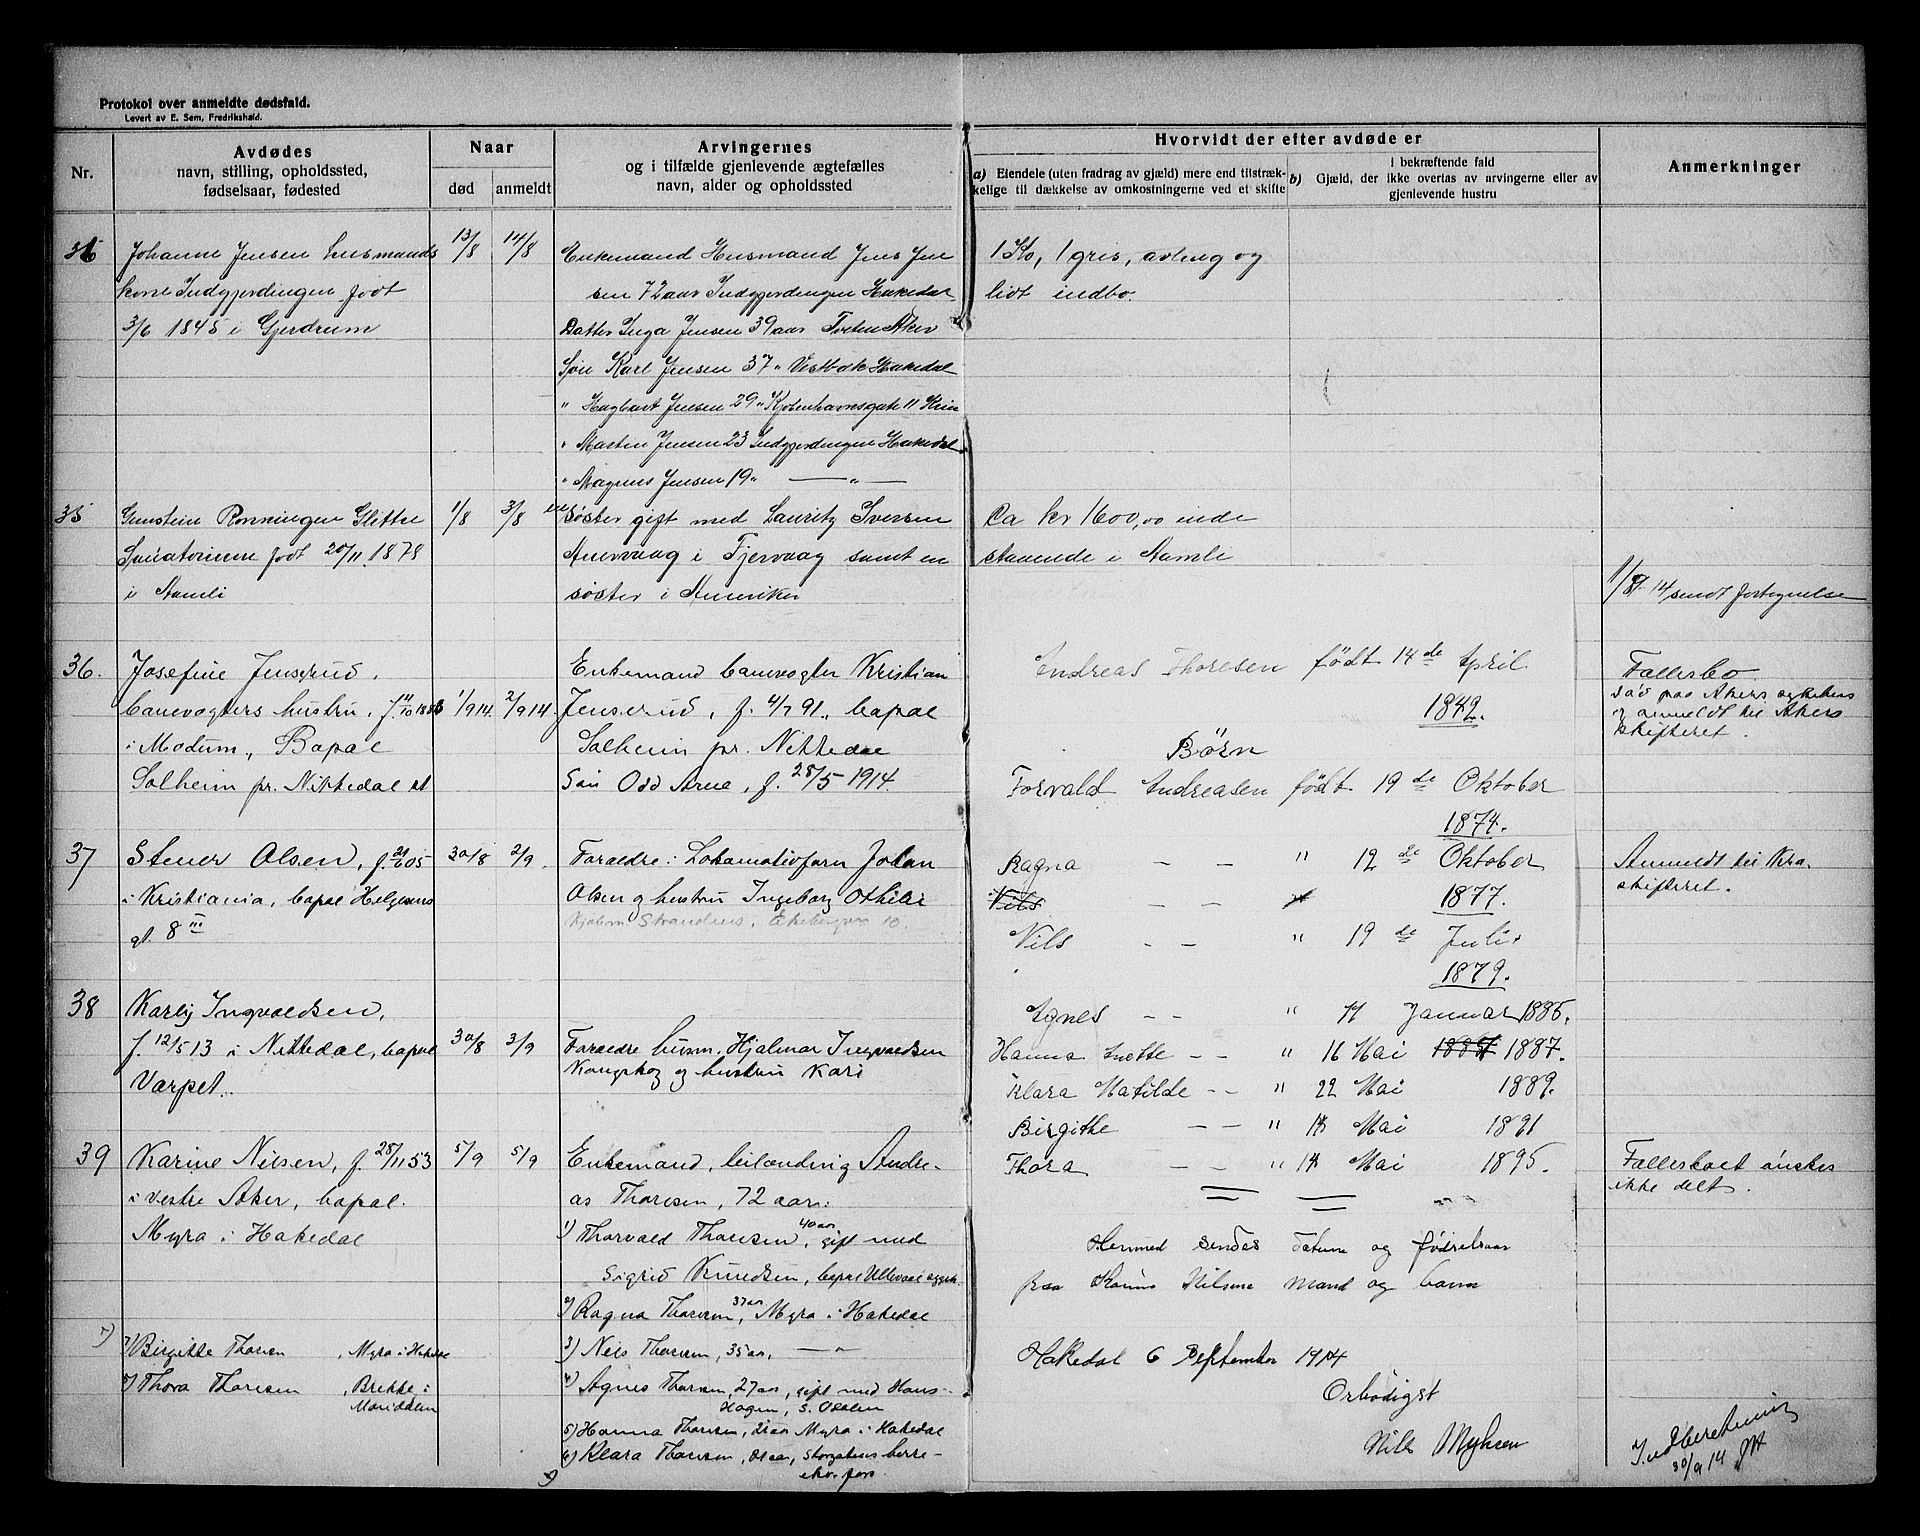 Protokol over anmeldte dødsfald.
Levert av E. Sem, Fredrikshald.
Nr.
Avdødes
navn, stilling, opholdssted,
fødselsaar, fødested
Naar
død
anmeldt
Arvingernes
og i tilfælde gjenlevende ægtefælles
navn, alder og opholdssted
Hvorvidt der efter avdøde er
a) Eiendele (uten fradrag av gjæld) mere end tilstræk-
kelige til dækkelse av omkostningerne ved et skifte
i bekræftende fald
b) Gjæld, der ikke overtas av arvingerne eller av
gjenlevende hustru
Anmerkninger
Johanne Jensen husmands
kone Indgjerdingen født
3/6 1845 i Gjerdrum
13/8
14/8
Enkemand Husmand Jens Jen
sen 72 aar Indgjerdingen Hakedal
Datter Inga Jensen 39 aar Aker
Søn Karl Jensen 37 " Hakedal
" Hagbart Jensen 29 " Kjøbenhavnsgate 11 Kria
" Martin Jensen 23 Indgjerdingen Hakedal
" Magnus Jensen 19 " — " —
1 Ko, 1 gris, avling og
lidt indbo.
35
Gunstein Rønningen Glittre
Sanatorium født 20/11 1878
i Aamli
1/8
3/8
en søster gift med Lauritz Iversen
i Fjervaag samt en
søster i Amerika
Ca kr 1600,00 inde
staaende i Aamli
14 sendt fortegnelse
36.
Josefine Jenserud,
banevogters hustru, f. 14/10 1888
i Modum, Bopæl
Solheim pr. Nittedal st
1/9 14.
2/9 14.
Enkemand banevogter Kristian
Jenserud, f. 4/7 91., bopæl
Solheim pr. Nittedal
Søn Odd Arne, f. 28/5 1914.
Fællesbo
37
Olsen, f. 05
i Kristiania, bopæl Helgesens
gt. 8 III
30/8
2/9.
Foræedre: Lokomotivform Johan
Olsen og hustru Ingeborg Othilie
Anmeldt til Kra
skifteret.
38
Karly Ingvaldsen,
f. 12/5 13 i Nittedal, bopæl
Varpet.
30/8
3/9
Foræedre husm. Hjalmar Ingvaldsen
og hustru Kari
39
Karine Nilsen, f. 28/11 53
i vestre Aker, bopæl.
Myra i Hakedal
5/9
5/9
Enkemand, Andre-
as Thoresen, 72 aar:
1) Thorvald Thoresen, 40 aar, gift med
Sigrid Knudsen, bopæl
2) Ragna Thoresen, 37 aar, Myra i Hakedal
3) Nils Thoresen, 35 aar, — " —
4) Agnes Thoresen, 27 aar, gift med Hans
Hagen,
5) Hanna Thoresen, Myra i Hakedal
6) Klara Thoresen,
7) Birgitte Thoresen, Myra i Hakedal
Thora Thoresen, Brekke i
Maridalen
Fællesboet ønskes
ikke delt.
Andreas Thoresen født 14 de April
1842.
Børn
Torvald Andreasen født 19 de Oktober
1874.
Ragna — — " 12 de Oktober
Nils — — 1877.
Nils — — " 19 de Juli
1879.
Agnes — — " 11 Januar 1886.
Hanna — — " 16 Mai 1887.
Klara Matilde — — " 22 Mai 1889.
Birgithe — — " 14 Mai 1891
Thora — — " 14 Mai 1895.
Hermed sendes Datum og fødselsaar
fra Karine Nilsens mand og barn
Hakedal 6 September 1914
Ærbødigst
Nils Myhren
30/9 14